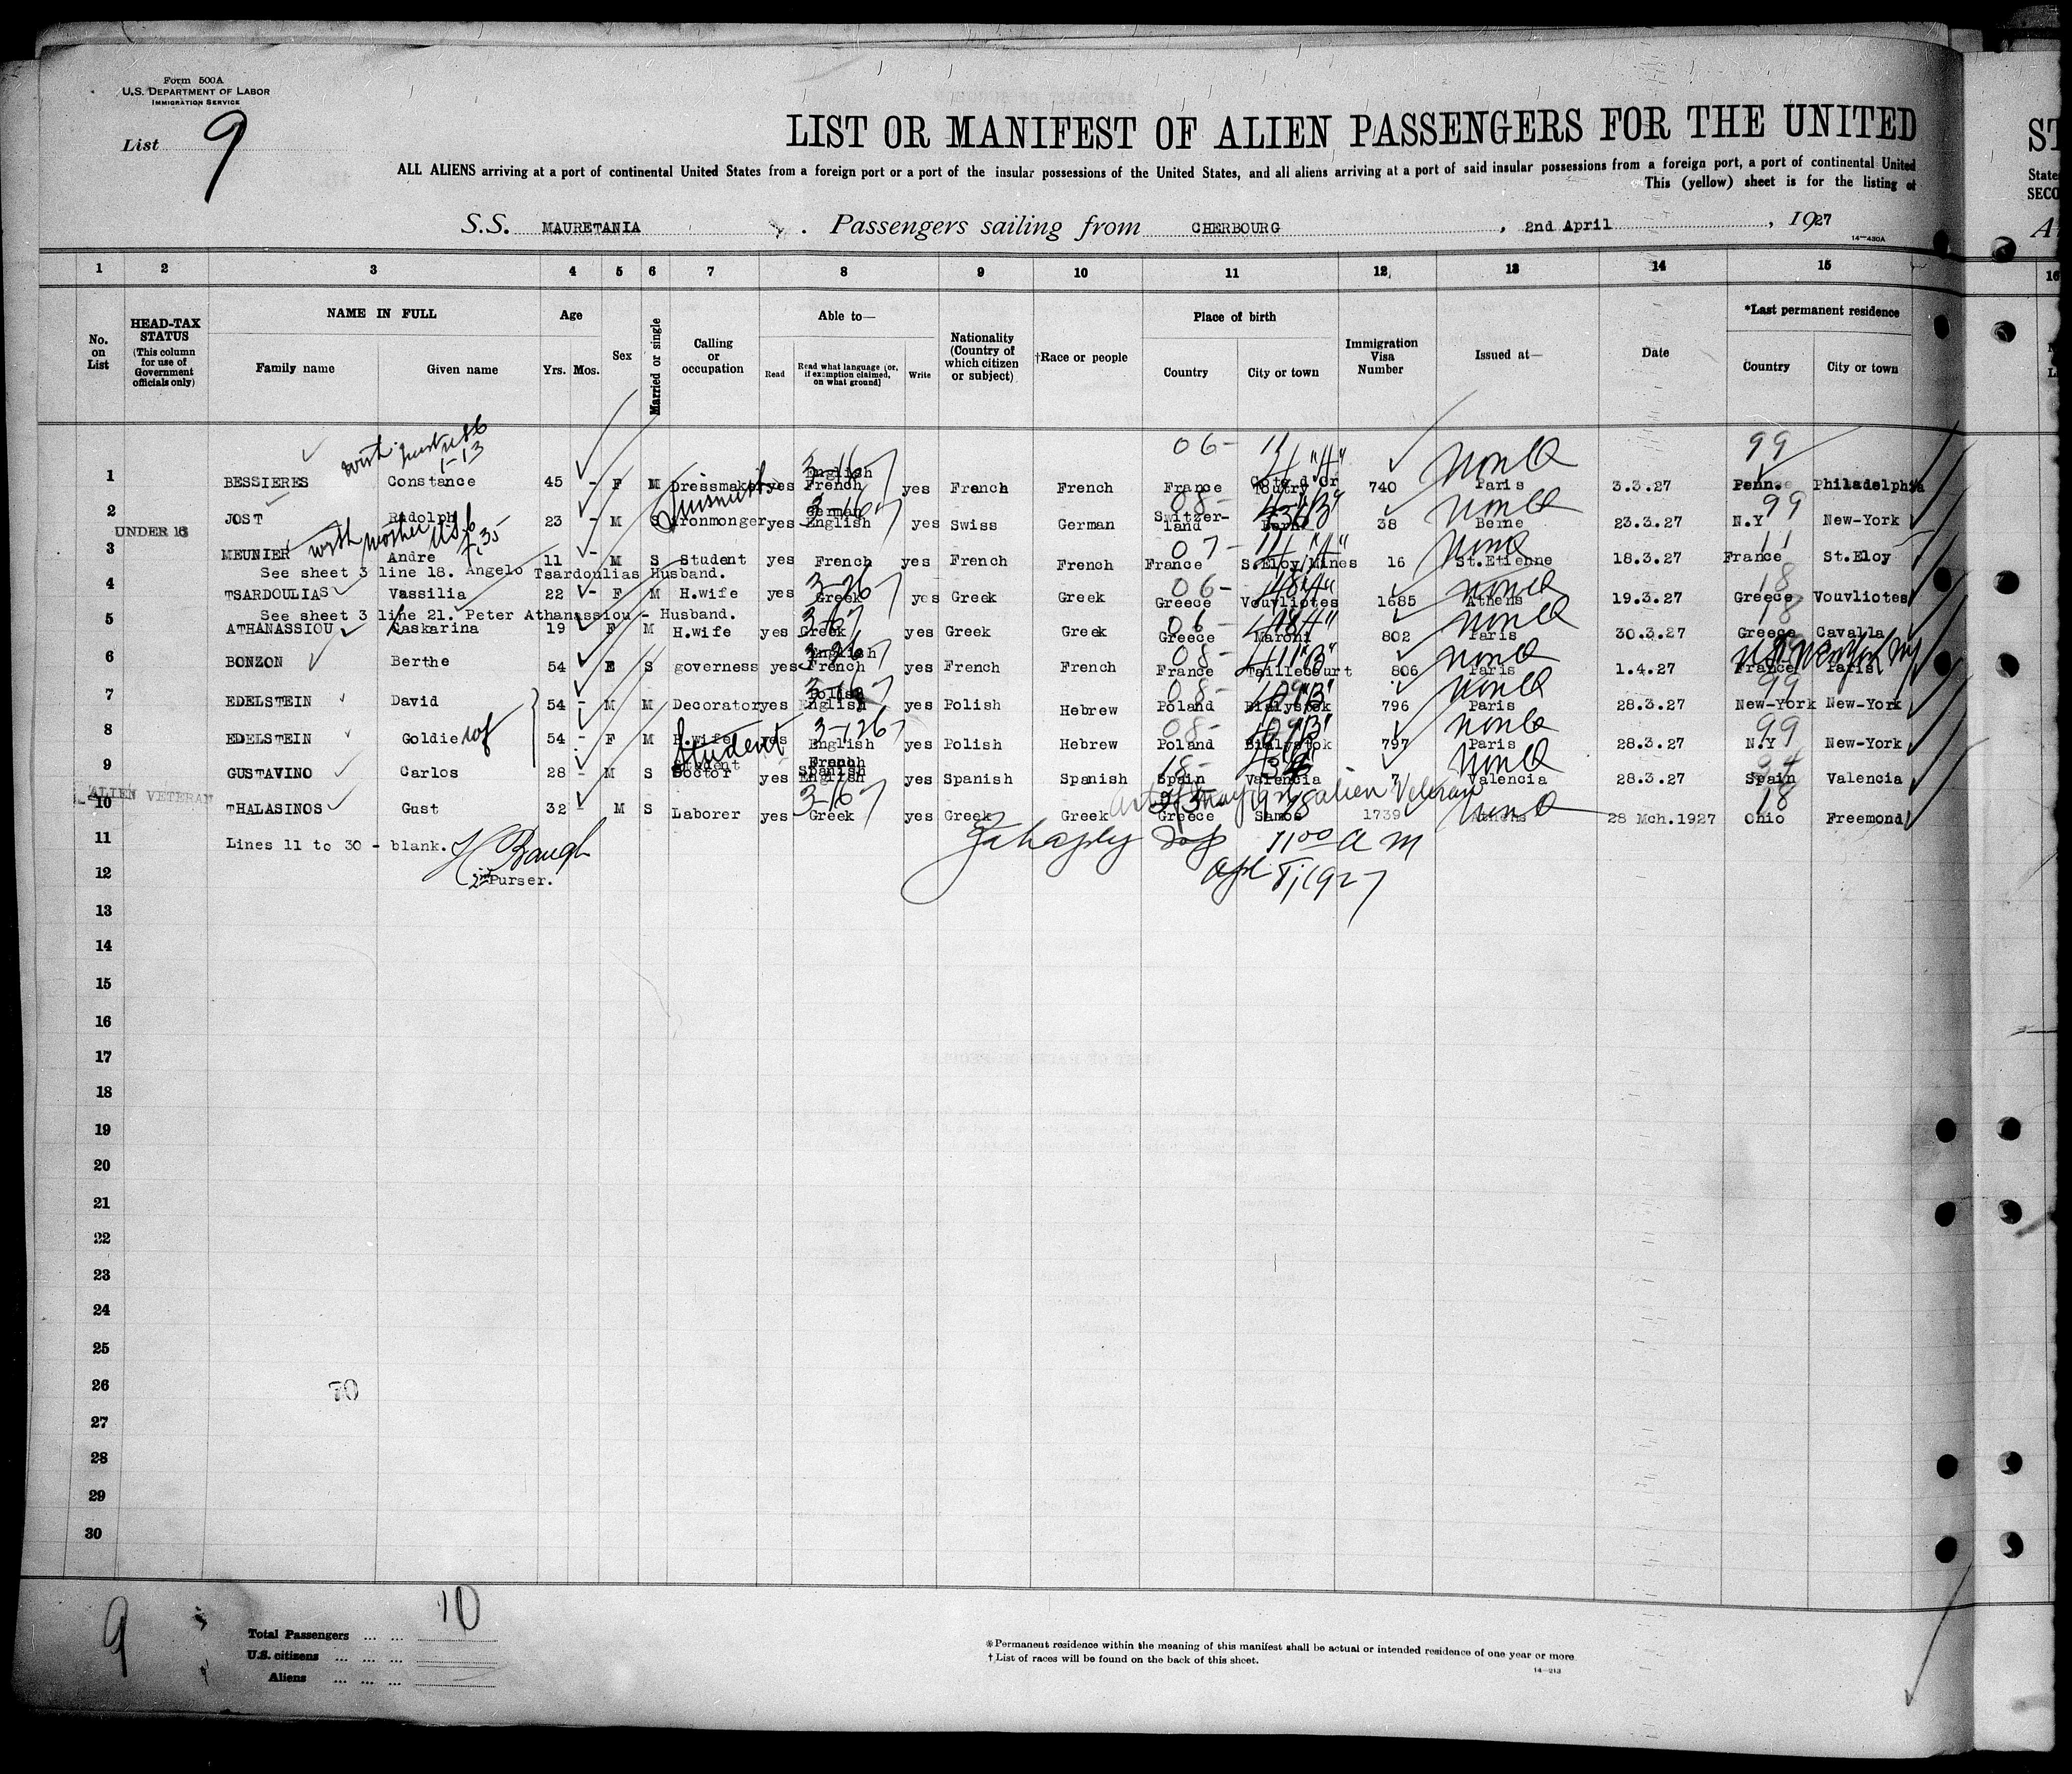 Form 500A
U.S. DEPARTMENT OF LABOR
IMMIGRATION SERVICE
List 9
LIST OR MANIFEST OF ALIEN PASSENGERS FOR THE UNITED
ALL ALIENS arriving at a port of continental United States from a foreign port or a port of the insular possessions of the United States, and all aliens arriving at a port of said insular possessions from a foreign port, a port of continental United
This (yellow) sheet is for the listing of
S.S. MAURETANIA . Passengers sailing from CHERBOURG , 2nd April , 1927
14—430A
1 2 3 4 5 6 7 8 9 10 11 12 13 14 15
No. on List
HEAD-TAX STATUS (This column for use of Government officials only)
NAME IN FULL
Family name Given name
Age
Yrs. Mos.
Sex
Married or single
Calling or occupation
Able to—
Read
Read what language (or, if exemption claimed, on what ground)
Write
Nationality (Country of which citizen or subject)
†Race or people
Place of birth
Country City or town
Immigration Visa Number
Issued at—
Date
*Last permanent residence
Country City or town
06- 99
1 BESSIERES Constance 45 - F M Dressmaker yes English French yes French French France Toutry Cote d'or 740 Paris 3.3.27 Penn. Philadelphia
2 JOST Rudolph 23 - M S Ironmonger yes German English yes Swiss German Switzerland Bern 38 Berne 23.3.27 N.Y 99 New-York
UNDER 16 with mother
3 MEUNIER Andre 11 - M S Student yes French yes French French France S.Eloy/Mines 16 St.Etienne 18.3.27 France St.Eloy
See sheet 3 line 18. Angelo Tsardoulias Husband.
4 TSARDOULIAS Vassilia 22 - F M H.wife yes Greek yes Greek Greek Greece Vouvliotes 1685 Athens 19.3.27 Greece Vouvliotes
See sheet 3 line 21. Peter Athanassiou - Husband.
5 ATHANASSIOU Laskarina 19 F M H.wife yes Greek yes Greek Greek Greece Maroni 802 Paris 30.3.27 Greece Cavalla
6 BONZON Berthe 54 - F S governess yes English French yes French French France Taillecourt 806 Paris 1.4.27 France Paris
7 EDELSTEIN David 54 - M M Decorator yes Polish English yes Polish Hebrew Poland Bialystok 796 Paris 28.3.27 New-York New-York
8 EDELSTEIN Goldie wf 54 - F M H.wife yes English yes Polish Hebrew Poland Bialystok 797 Paris 28.3.27 N.Y 99 New-York
Student
9 GUSTAVINO Carlos 28 - M S Student Doctor yes French Spanish English yes Spanish Spanish Spain Valencia 7 Valencia 28.3.27 Spain Valencia
ALIEN VETERAN
10 THALASINOS Gust 32 - M S Laborer yes Greek yes Greek Greek Greece Samos 1739 Athens 28 Mch.1927 Ohio Freemond
11 Lines 11 to 30 - blank.
11 00 a m
12 2nd Purser.
13
14
15
16
17
18
19
20
21
22
23
24
25
26
70
27
28
29
30
9
10
Total Passengers ... ...
U.S. citizens ... ... ...
Aliens ... ... ...
*Permanent residence within the meaning of this manifest shall be actual or intended residence of one year or more
† List of races will be found on the back of this sheet.
14—213
ST
State
SECO
A
16